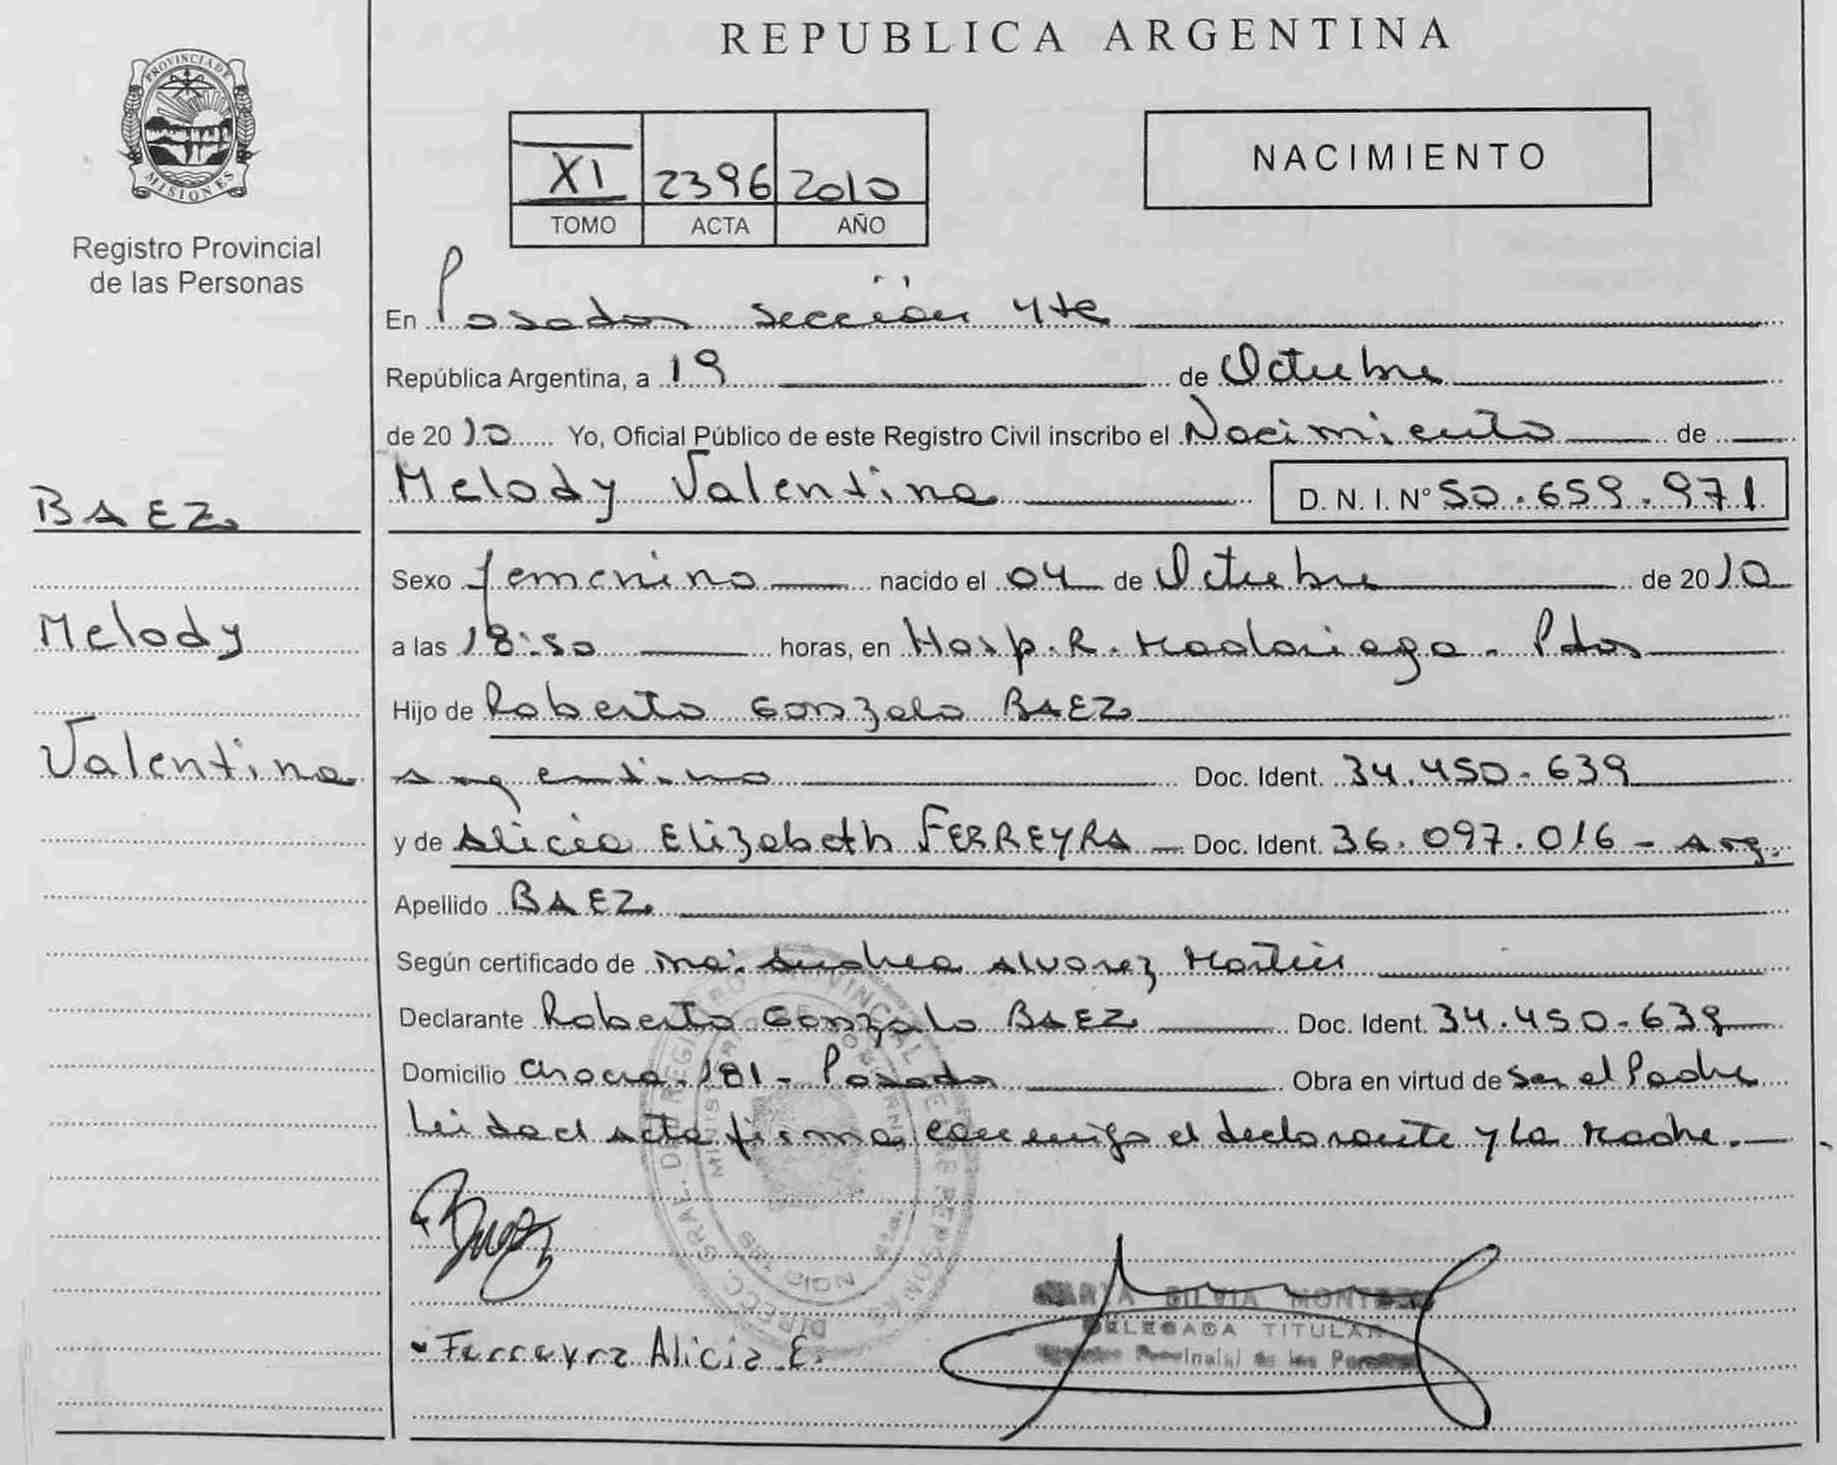 REPUBLICA ARGENTINA
PROVINCIA DE
MISIONES
Registro Provincial
de las Personas
XI 2396 2010
TOMO ACTA AÑO
NACIMIENTO
En Posadas sección 4ta
República Argentina, a 19 de Octubre
de 2010 Yo, Oficial Público de este Registro Civil inscribo el Nacimiento de
Melody Valentina D. N. I. Nº 50.659.971
BAEZ
Melody
Valentina
Sexo femenino nacido el 04 de Octubre de 2010
a las 18:50 horas, en Hosp. R. Madariaga - Pdas
Hijo de Roberto Gonzalo BAEZ
argentino Doc. Ident. 34.450.639
y de Alicia Elizabeth FERREYRA Doc. Ident. 36.097.016 - Arg.
Apellido BAEZ
Según certificado de Ma. Andrea Alvarez Martins
Declarante Roberto Gonzalo BAEZ Doc. Ident. 34.450.639
Domicilio 181 - Posadas Obra en virtud de ser el Padre
Leida el acta firma conmigo el declarante y la Madre.
Baez
Ferreyra Alicia E.
SILVIA
DELEGADA TITULAR
Provincial de las Personas